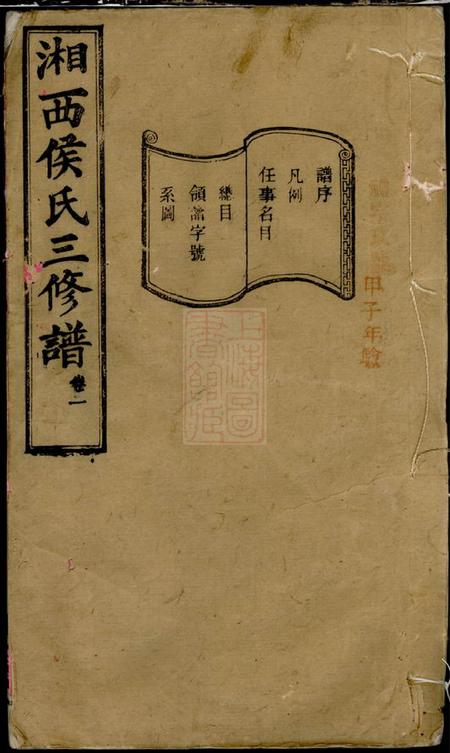 湘西侯氏三修譜 卷一
譜序
凡例
任事名目
總目
領譜字號
系圖
甲子年
上海圖
書館藏